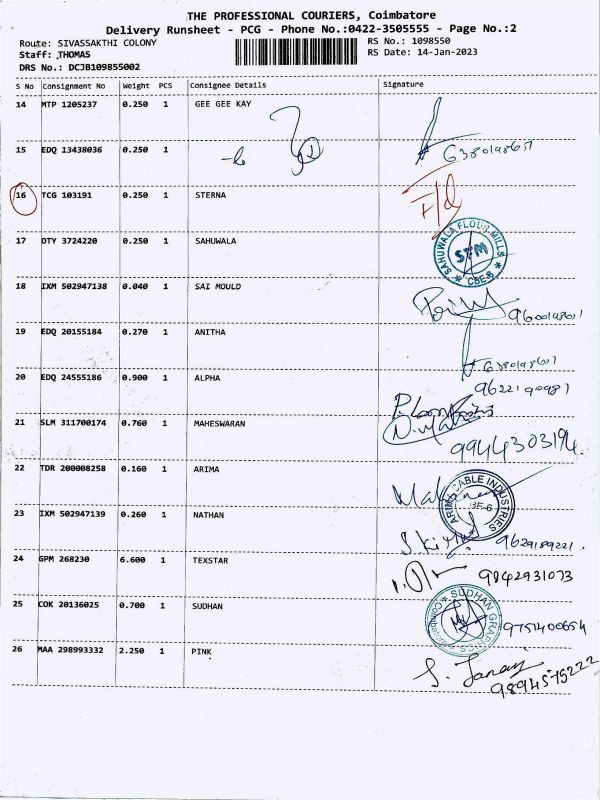 THE PROFESSIONAL COURIERS, Coimbatore
Delivery Runsheet - PCG - Phone No.:0422-3505555 - Page No.:2
Route: SIVASSAKTHI COLONY RS No.: 1098550
Staff: THOMAS RS Date: 14-Jan-2023
DRS No.: DCJB109855002
S No Consignment No Weight PCS Consignee Details Signature
14 MTP 1205237 0.250 1 GEE GEE KAY
15 EDQ 13438036 0.250 1
6380198651
16 TCG 103191 0.250 1 STERNA
17 OTY 3724220 0.250 1 SAHUWALA
SAHUWALA FLOUR MILLS
SFM
CBE-8
18 IXM 502947138 0.040 1 SAI MOULD
19 EDQ 20155184 0.270 1 ANITHA
20 EDQ 24555186 0.900 1 ALPHA
21 SLM 311700174 0.760 1 MAHESWARAN
9944303194
22 TDR 200008258 0.160 1 ARIMA
CABLE INDUSTRIES
23 IXM 502947139 0.260 1 NATHAN
9629189221
24 GPM 268230 6.600 1 TEXSTAR
9842931073
25 COK 20136025 0.700 1 SUDHAN
SUDHAN GRAFICS
9751400654
26 MAA 298993332 2.250 1 PINK
9894575222